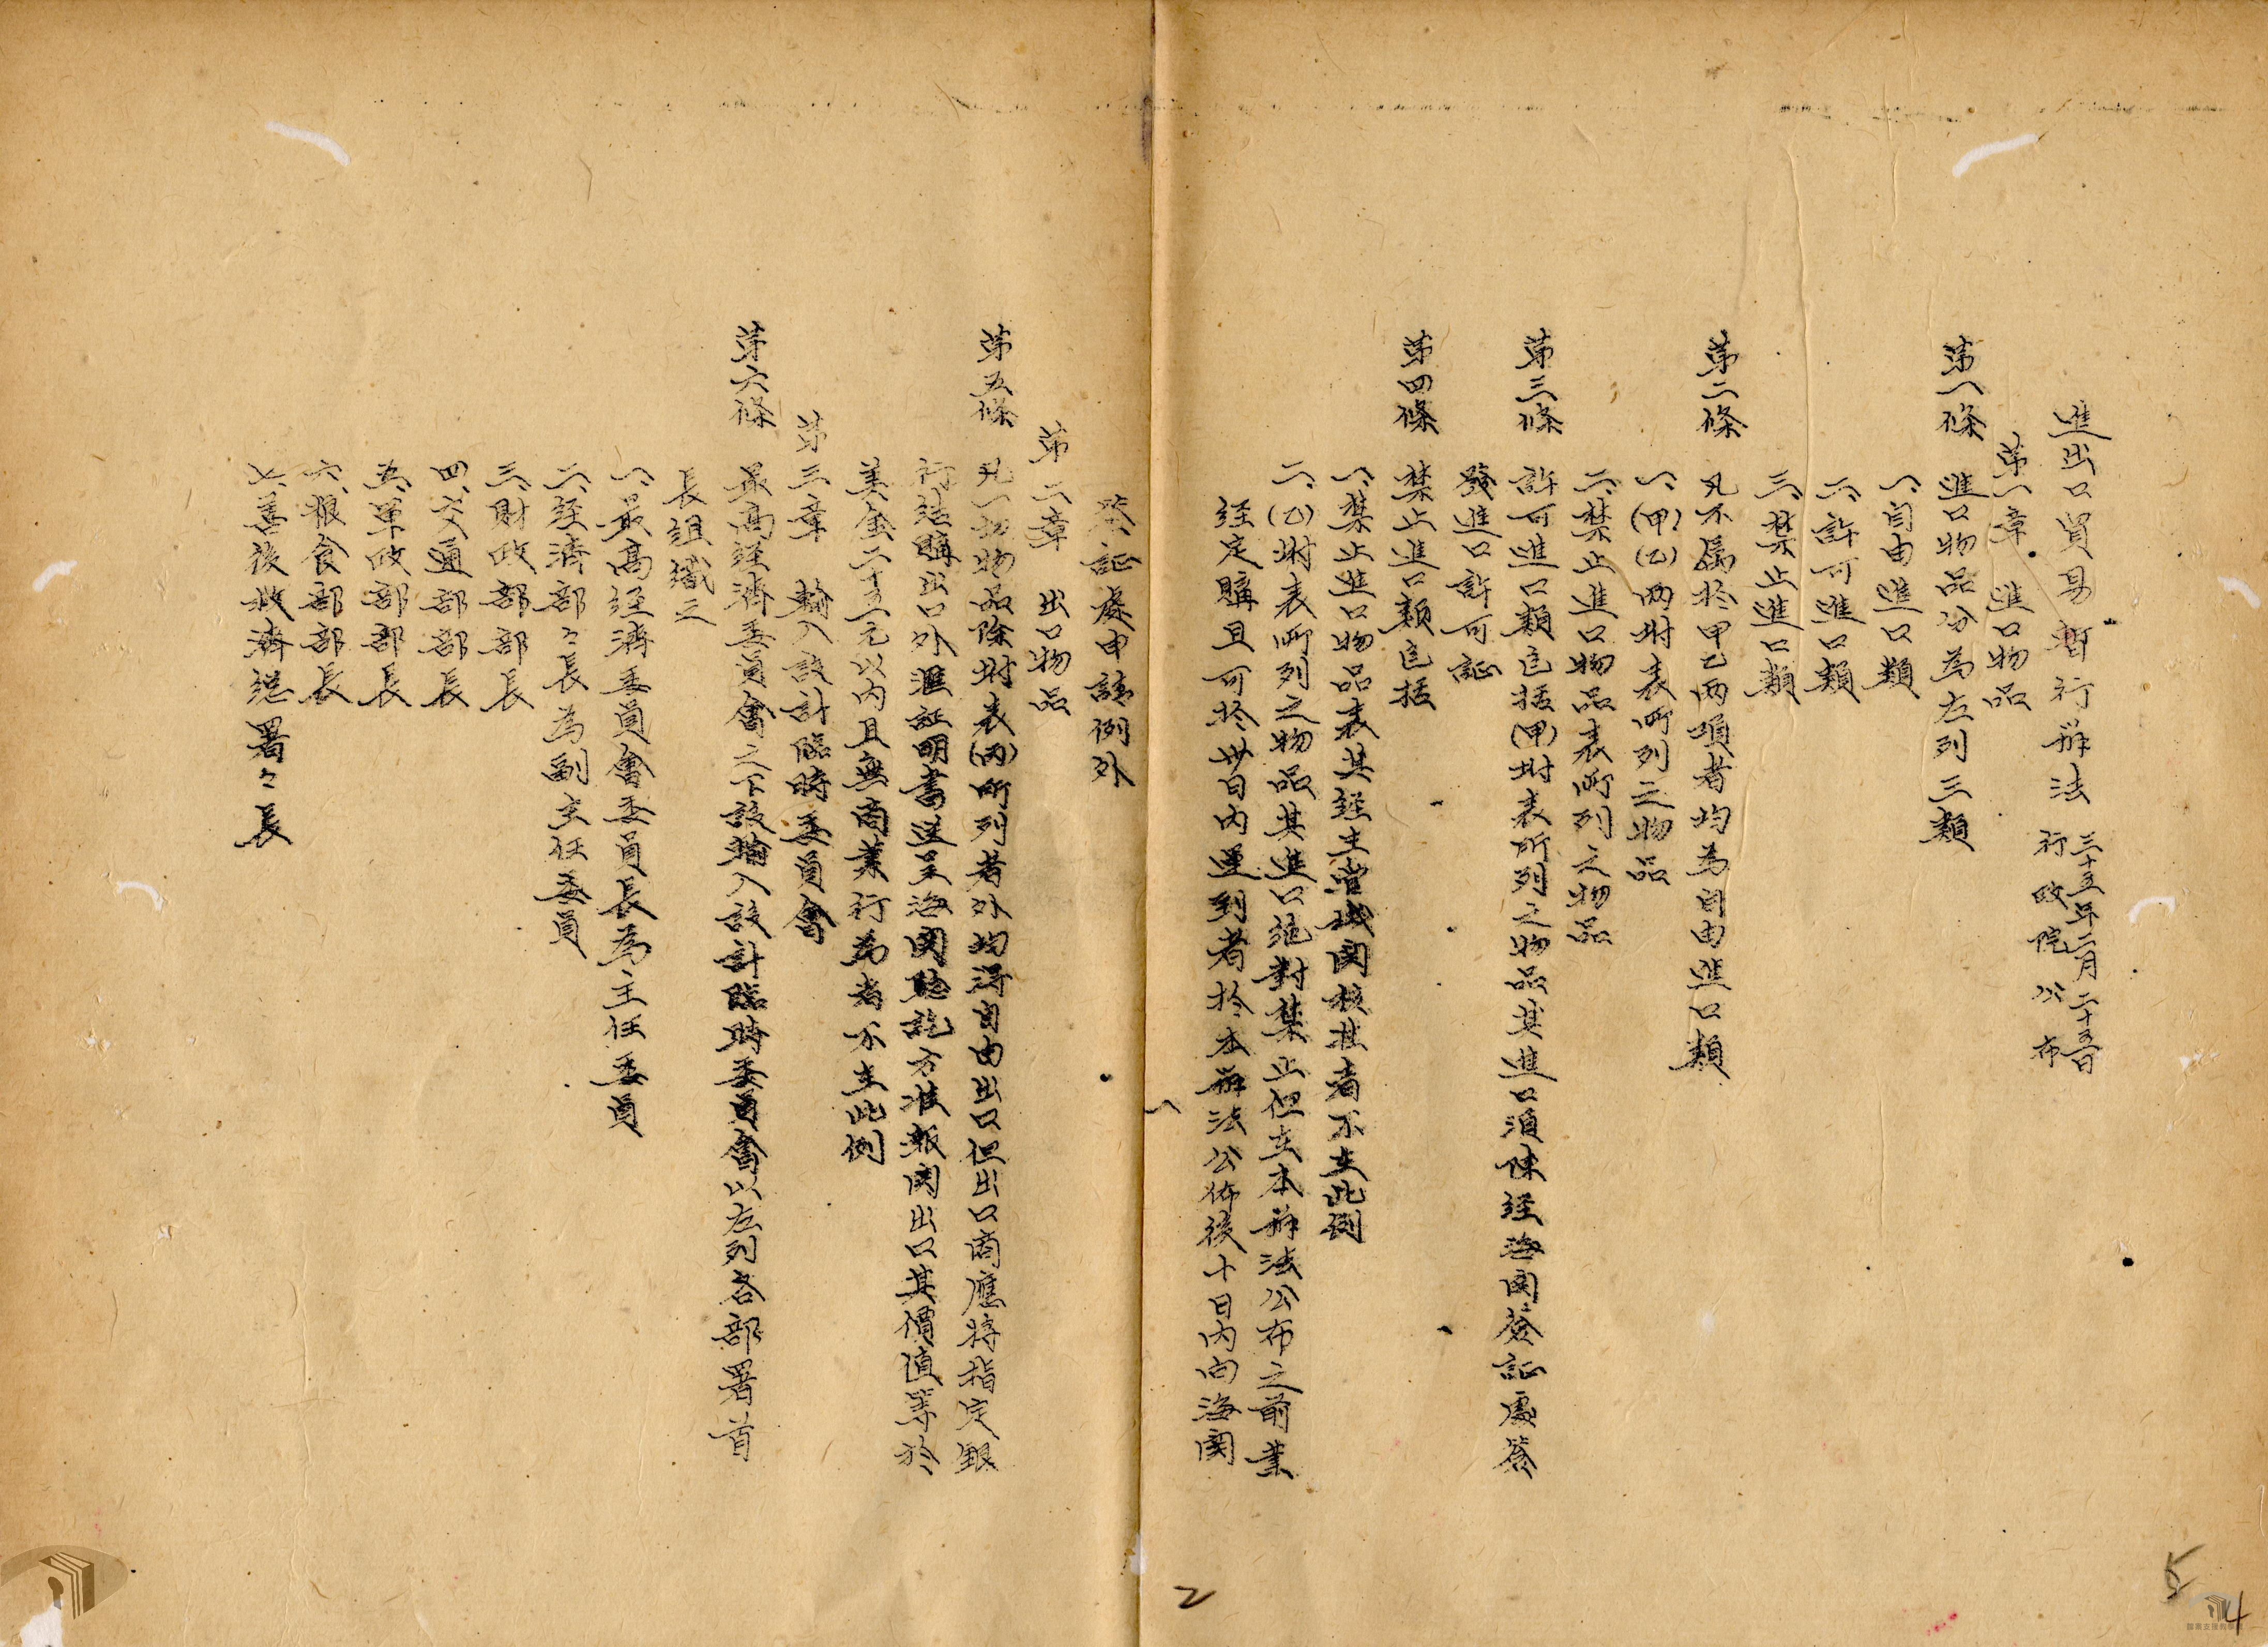 進出口貿易暫行辦法
三十五年二月二十五日
行政院公布
第一章　進口物品
第一條　進口物品分為左列三類
一、自由進口類
二、許可進口類
三、禁止進口類
第二條　凡不屬於甲乙兩項者均為自由進口類
一、(甲)(乙)兩附表所列之物品
二、禁止進口物品表所列之物品
第三條　許可進口類包括(甲)附表所列之物品其進口須陳經海関簽証處簽
發進口許可証
第四條　禁止進口類包括
一、禁止進口物品表其経主管機関核准者不在此例
二、(乙)附表所列之物品其進口絕對禁止但在本辦法公布之前業
経定購且可於卅日内運到者於本辦法公佈後十日内向海関
一
簽証處申請例外
第二章　出口物品
第五條　凡一切物品除附表(丙)所列者外均得自由出口但出口商應將指定銀
行結購出口外滙証明書送呈海関驗訖方准報関出口其價值等於
美金二十五元以内且無商業行為者不在此例
第三章　輸入設計臨時委員會
第六條　最高経濟委員會之下設輸入設計臨時委員會以左列各部署首
長組織之
一、最高経濟委員會委員長為主任委員
二、経濟部々長為副主任委員
三、財政部部長
四、交通部部長
五、軍政部部長
六、粮食部部長
七、善後救濟総署々長
2
5
4